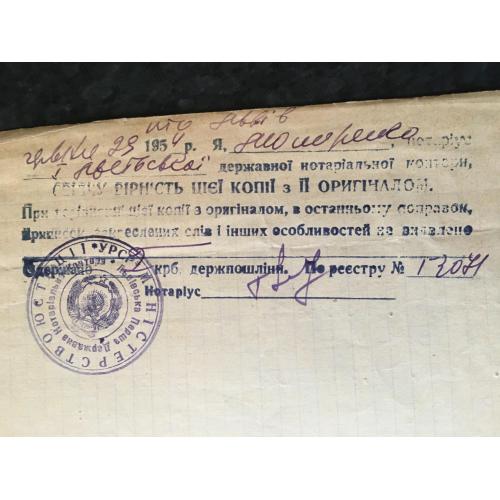 м. Львів
195 р. Я, Пономаренко, нотаріус
І Львівської державної нотаріальної контори,
СВІДЧУ ВІРНІСТЬ ЦІЄЇ КОПІЇ З ЇЇ ОРИГІНАЛОМ.
При звіренні цієї копії з оригіналом, в останньому поправок,
приписок, закреслених слів і інших особливостей не виявлено
Одержано крб. держпошлини. По реєстру № 1-2071
Нотаріус
МІНІСТЕРСТВО ЮСТИЦІЇ УРСР
Львівська Перша Державна Нотаріальна Контора